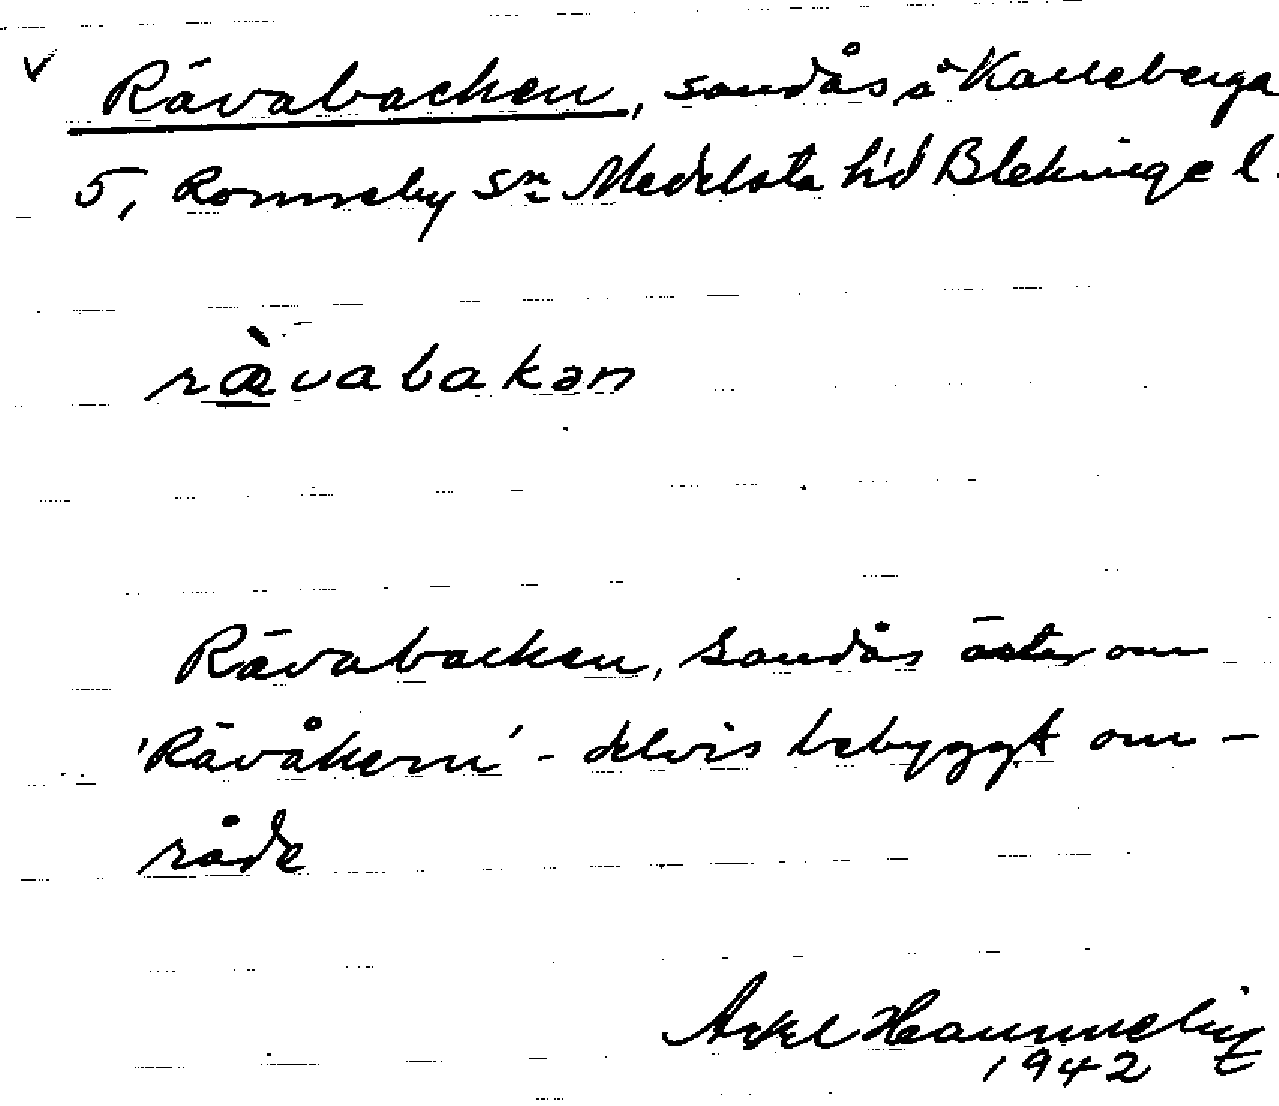 v Rävabacken, sandås å Kalleberga
5, Ronneby sn Medelsta hd Blekinge l.
ræ̀vabakən
Rävabacken, sandås öster om
'Rävåkern' - delvis bebyggt om-
råde
Axel
1942